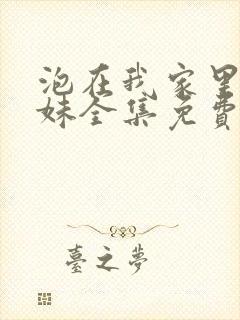 泡在我家里
妹全集免費
臺之夢